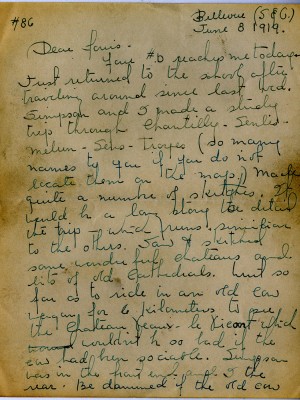 #86
Bellevue (S & O)
June 8 1919.
Dear
Your # D reaches me today.
Just returned to the school after
traveling around since last Wed.
Simpson and I made a study
trip through Chantilly - Senlis -
Melun - Sens - Troyes (so many
names to you if you do not
locate them on the map.) Made
quite a number of sketches. It
would be a long story to detail
the trip - which runs similiar
to the others. Saw & sketched
some wonderful chateaus and
bits of old Cathedrals. Went so
far as to ride in an old cow
wagon for 6 kilometers to see
the Chateau which
wouldn't be so bad if the
cow had been sociable. Simpson
was in the front end and I the
rear. Be damned if the old cow